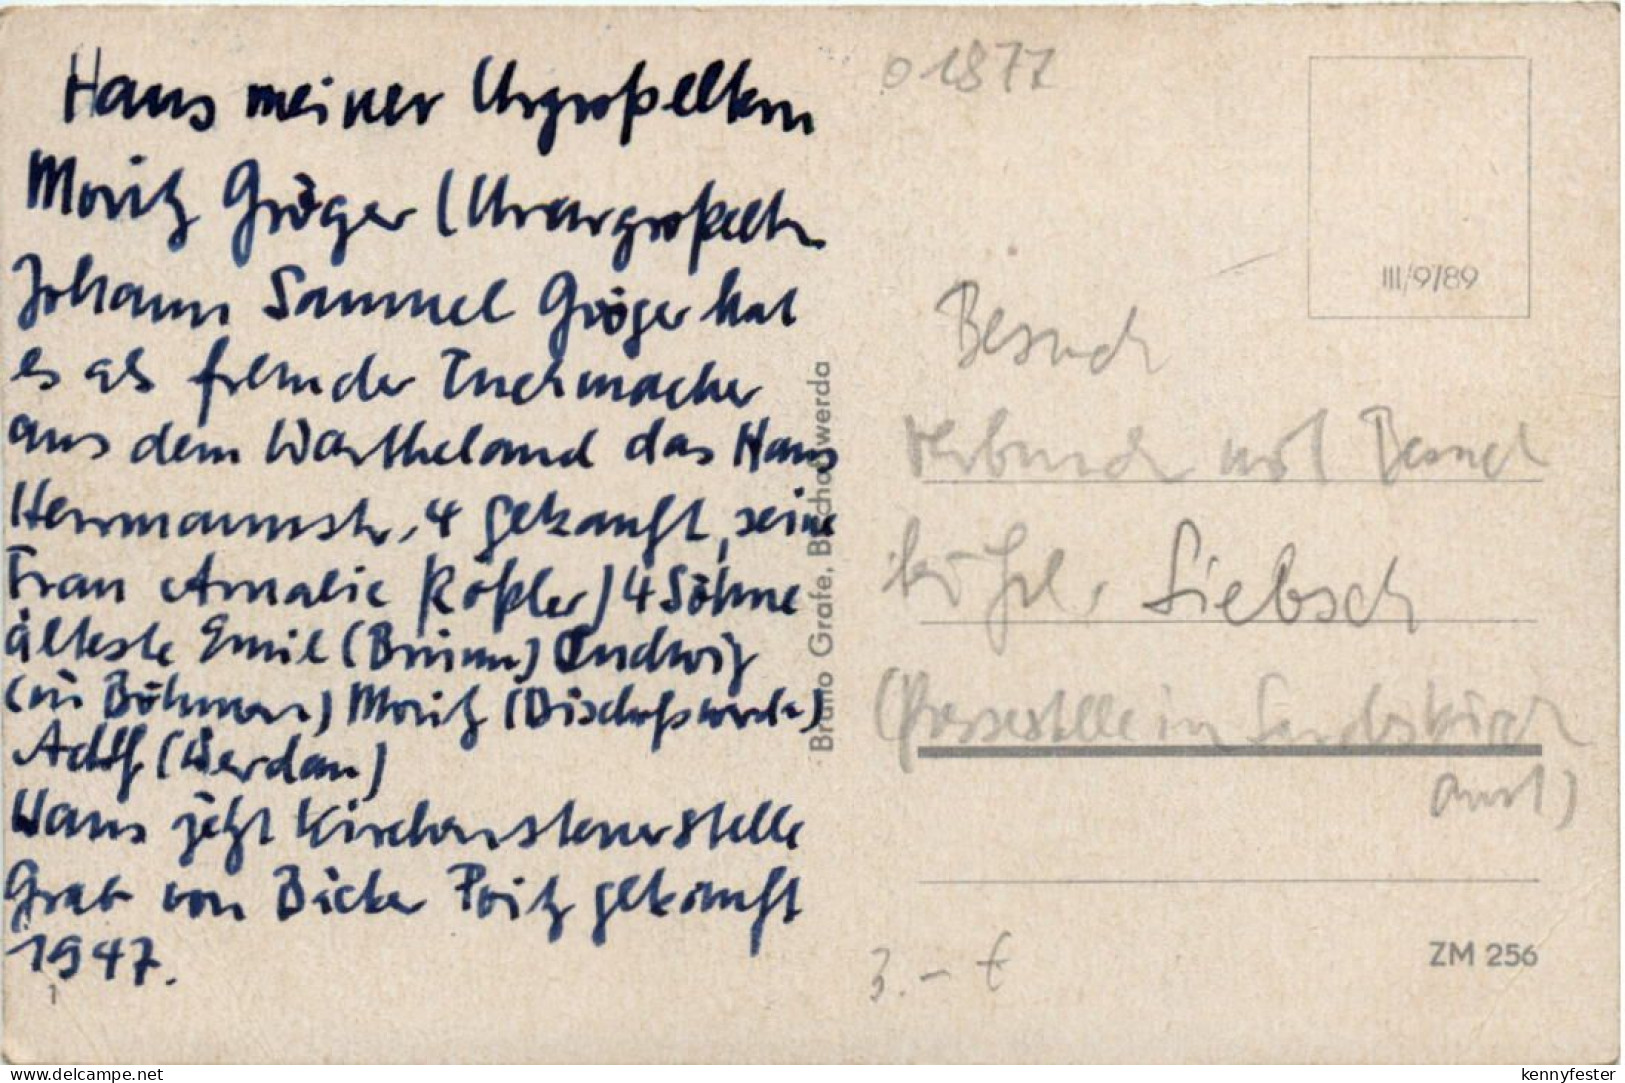 Haus meiner Urgroßeltern
Moritz Gröger (Ururgroßelt.
Johann Samuel Gröger hat
es als fremder Tuchmacher
aus dem Wartheland das Haus
Herrmannstr. 4 gekauft, seine
Frau Amalie Rößler) 4 Söhne
älteste Emil (Brünn) Ludwig
(in Böhmen) Moritz (Bischofswerda)
Adolf (Werdau)
Haus jetzt Kirchensteuerstelle
Grab von Bäcker Pritz gekauft
1947.
1
Bruno Grafe, Bischofswerda
o 1877
III/9/89
Besuch
mit Besuch
Frl. Liebsch
(Pressestelle in Landeskirch
amt)
3.- €
ZM 256
www.delcampe.net
kennyfester